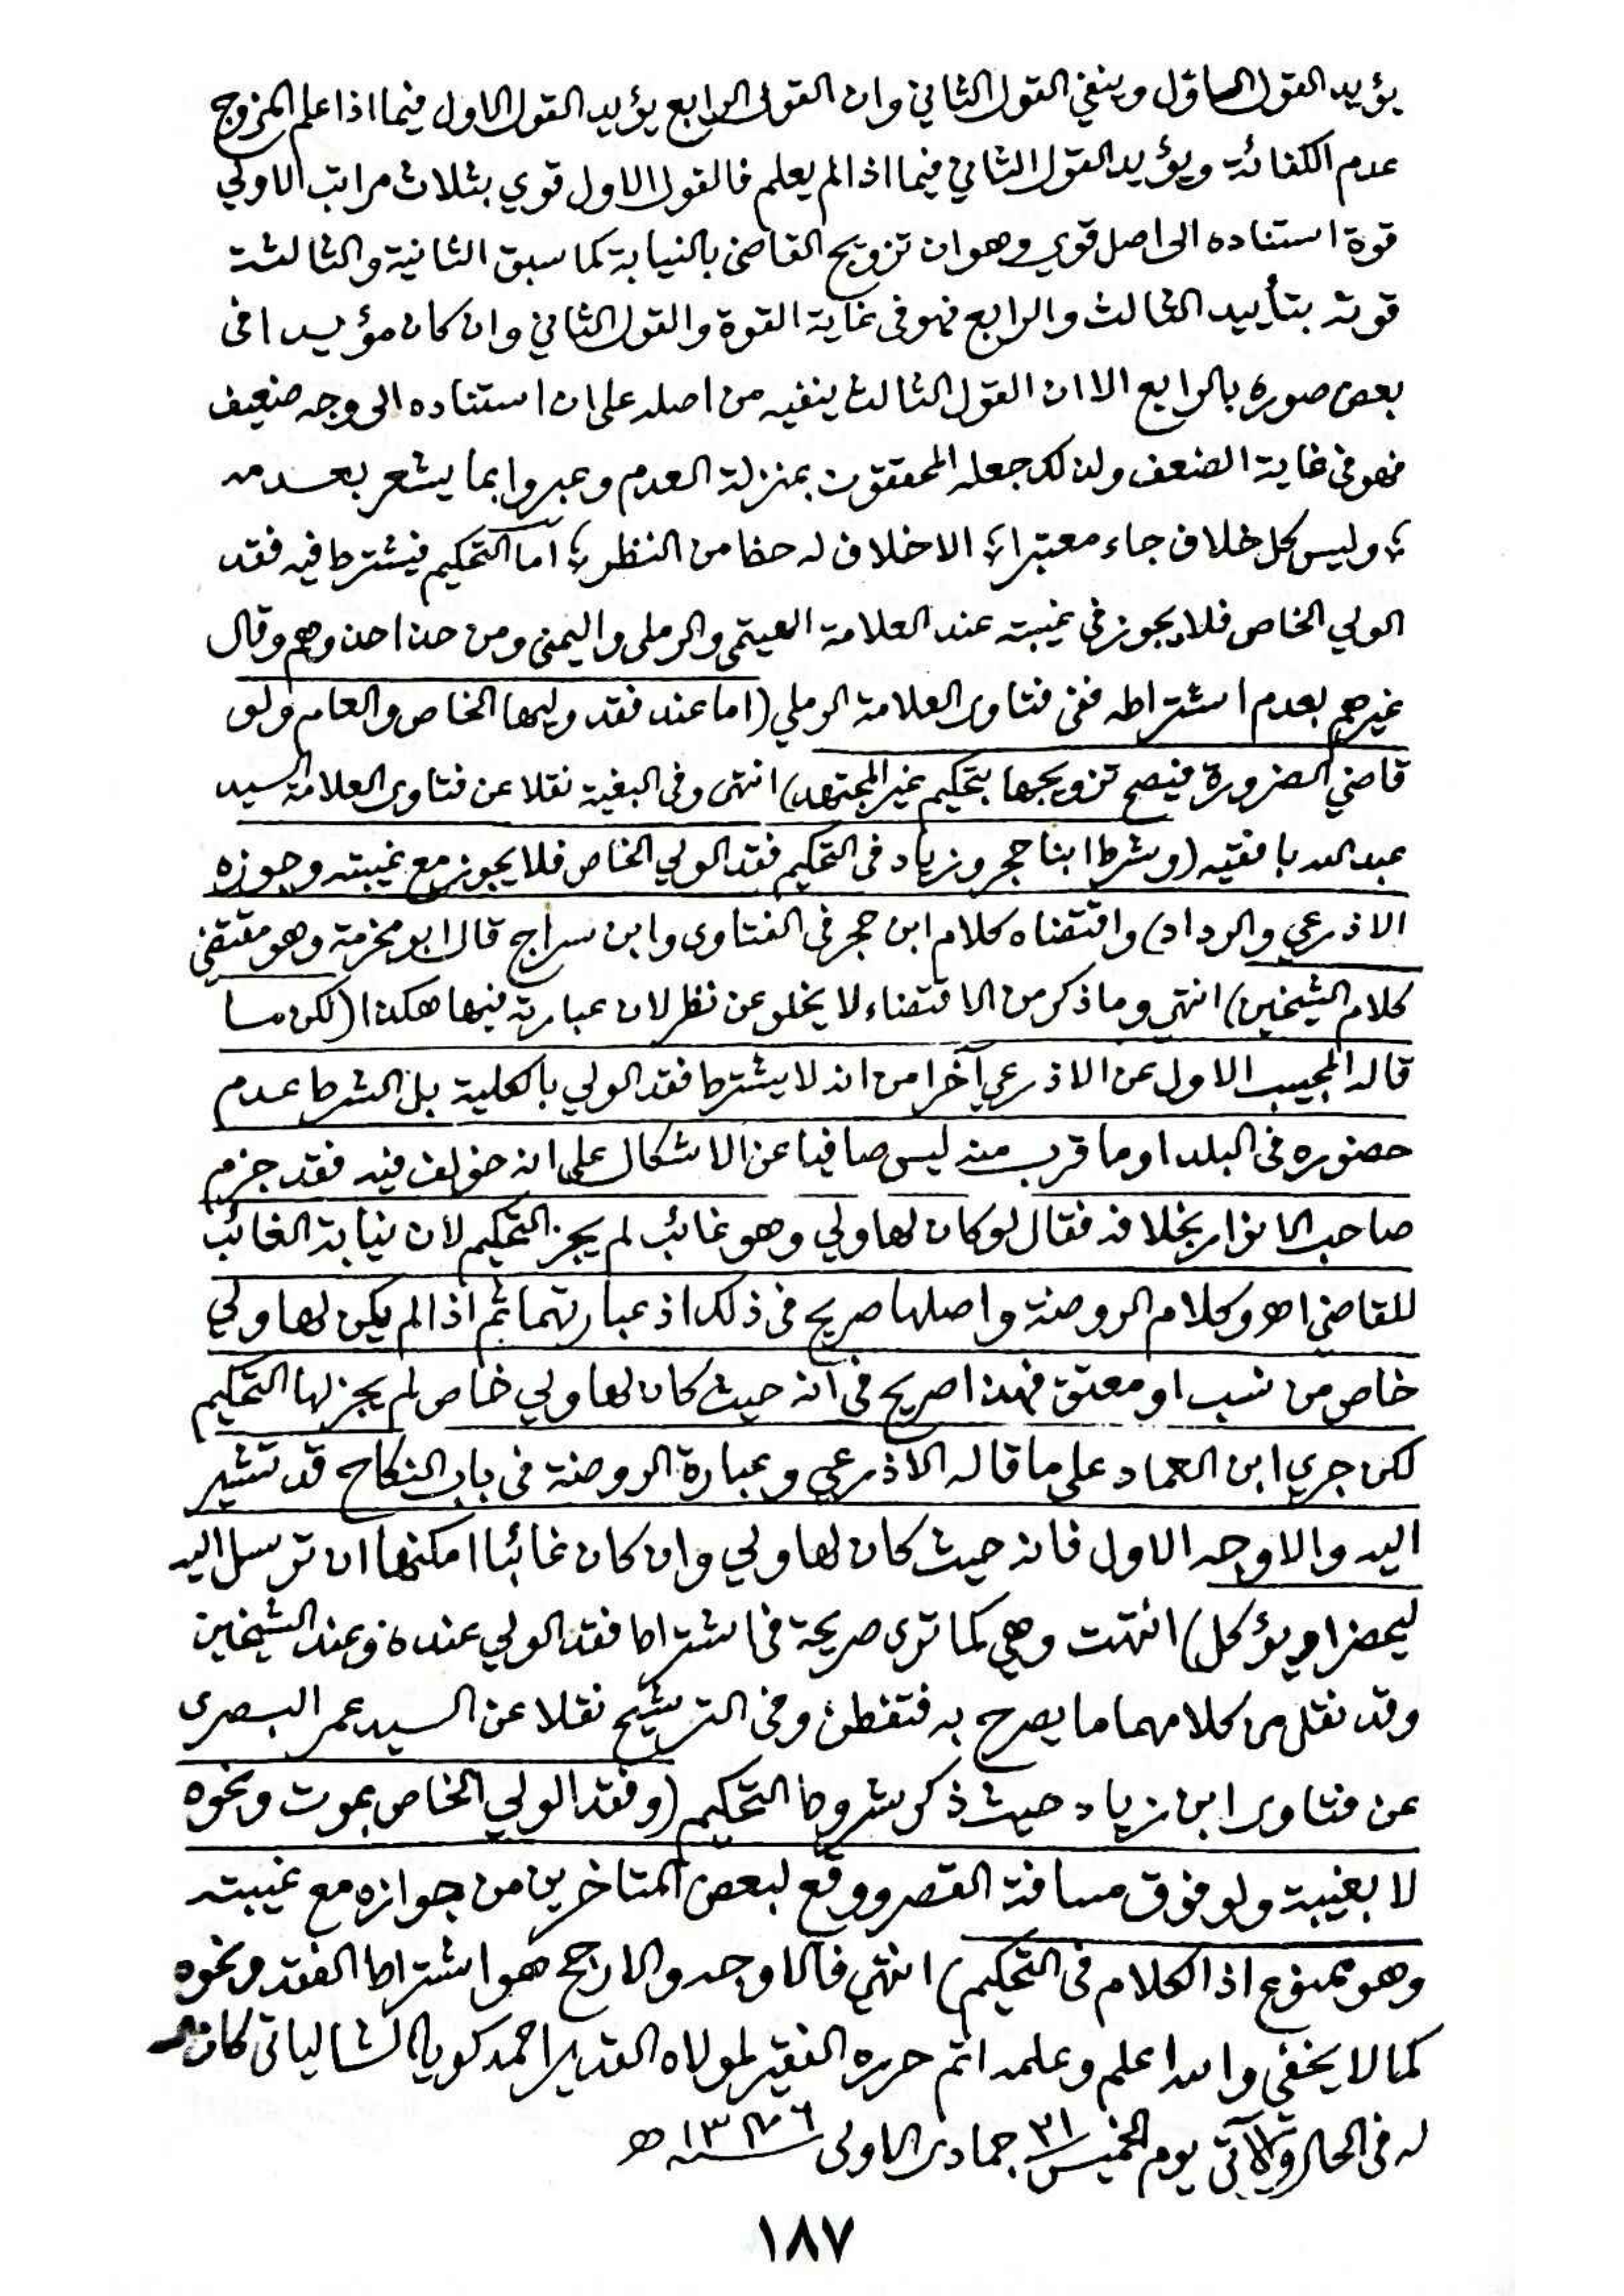 يؤيد القول الاول وينفي القول الثاني وان القول الرابع يؤيد القول الاول فيما اذا علم المزوج
عدم الكفائة ويؤيد القول الثاني فيما اذا لم يعلم فالقول الاول قوي بثلاث مراتب الاولي
قوة استناده الى اصل قوي وهو ان تزويج القاضى بالنيابة كما سبق الثانية والثالثة
قوته بتأييد الثالث والرابع فهو فى غاية القوة والقول الثاني وان كان مؤيدا فى
بعض صوره بالرابع الا ان القول الثالث ينفيه من اصله على ان استناده الى وجه ضعيف
فهو فى غاية الضعف ولذلك جعله المحققون بمنزلة العدم وعبروا بما يشعر بعدمه
؛ وليس كل خلاف جاء معتبرا ؛ الا خلاف له حظا من النظر ؛ اما التحكيم فيشترط فيه فقد
الولي الخاص فلا يجوز فى غيبته عند العلامة الهيتمى والرملى واليمنى ومن حذا حذوهم وقال
غيرهم بعدم اشتراطه ففى فتاوى العلامة الرملي (اما عند فقد وليها الخاص والعام ولو
قاضي الضرورة فيصح تزويجها بتحكيم غير المجتهد) انتهى وفى البغية نقلا عن فتاوى العلامة السيد
عبد الله بافقيه (وشرط ابنا حجر وزياد فى التحكيم فقد الولي الخاص فلا يجوز مع غيبته وجوزه
الاذرعي والرداد) واقتضاه كلام ابن حجر فى الفتاوى وابن سراج قال ابو مخرمة وهو مقتضى
كلام الشيخين) انتهى وما ذكر من الاقتضاء لا يخلو عن نظر لان عبارته فيها هكذا (لكن ما
قاله المجيب الاول عن الاذرعي آخرا من انه لا يشترط فقد الولي بالكلية بل الشرط عدم
حضوره فى البلد او ما قرب منه ليس صافيا عن الاشكال على انه خولف فيه فقد جزم
صاحب الانوار بخلافه فقال لو كان لها ولي وهو غائب لم يجز التحكيم لان نيابة الغائب
للقاضي اهـ وكلام الروضة واصلها صريح فى ذلك اذ عبارتهما ثم اذا لم يكن لها ولي
خاص من نسب او معتق فهذا صريح فى انه حيث كان لها ولي خاص لم يجز لها التحكيم
لكن جرى ابن العماد على ما قاله الاذرعي وعبارة الروضة فى باب النكاح قد تشير
اليه والاوجه الاول فانه حيث كان لها ولي وان كان غائبا امكنها ان ترسل اليه
ليحضر او يؤكل) انتهت وهي كما ترى صريحة فى اشتراط فقد الولي عنده وعند الشيخين
وقد نقل من كلامهما ما يصرح به فتفطن وفى الترشيح نقلا عن السيد عمر البصرى
عن فتاوى ابن زياد حيث ذكر شروط التحكيم (وفقد الولي الخاص بموت ونحوه
لا بغيبة ولو فوق مسافة القصر ووقع لبعض المتاخرين من جوازه مع غيبته
وهو ممنوع اذ الكلام فى التحكيم) انتهى فالاوجه والارجح هو اشتراط الفقد ونحوه
كما لا يخفى والله اعلم وعلمه اتم حرره الفقير لمولاه القدير احمد كويا الشالياتى كان
له فى الحال والآتى يوم الخميس ٣١ جمادى الاولى سنة ١٣٧٦ هـ
١٨٧